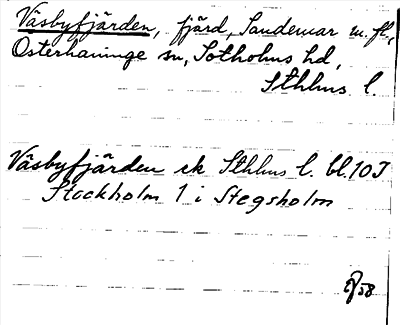 Väsbyfjärden, fjärd, Sandemar m. fl.,
Österhaninge sn, Sotholms hd,
Sthlms l.
Väsbyfjärden ek Sthlms l. bl. 10 J
Stockholm 1 i Stegsholm
58